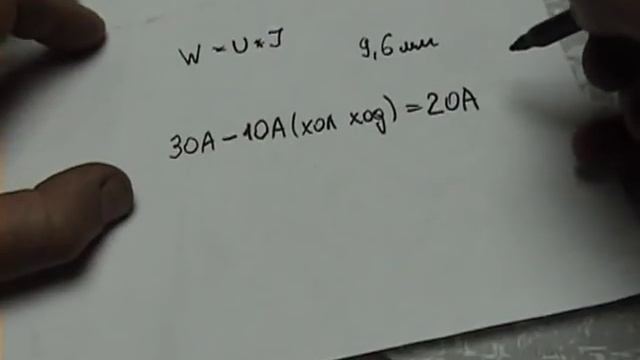 W = U * J 9,6 мм
30A - 10A (хол ход) = 20A